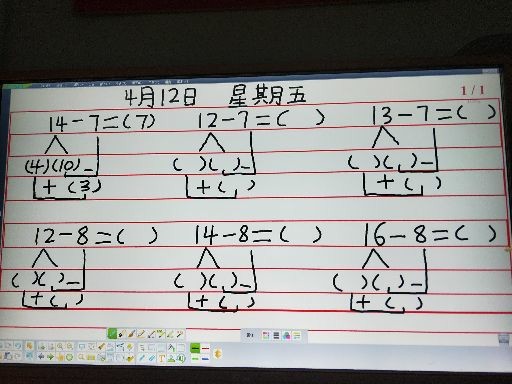 4月12日 星期五
1/1
14-7=(7) 12-7=( ) 13-7=( )
(4)(10)- ( )( )- ( )( )-
+(3) +( ) +( )
12-8=( ) 14-8=( ) 16-8=( )
( )( )- ( )( )- ( )( )-
+( ) +( ) +( )